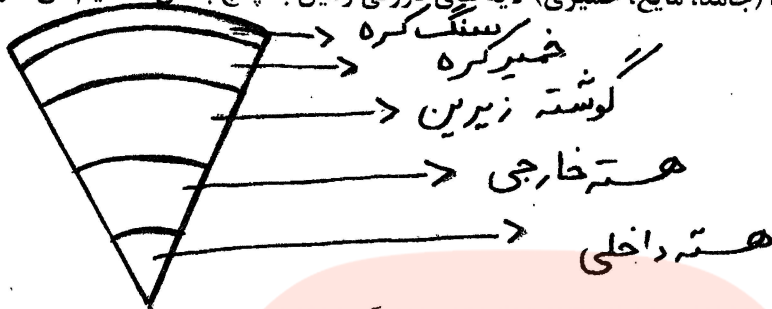 (جامد، مایع، خمیری)
سنگ کره
خمیر کره
گوشته زیرین
هسته خارجی
هسته داخلی